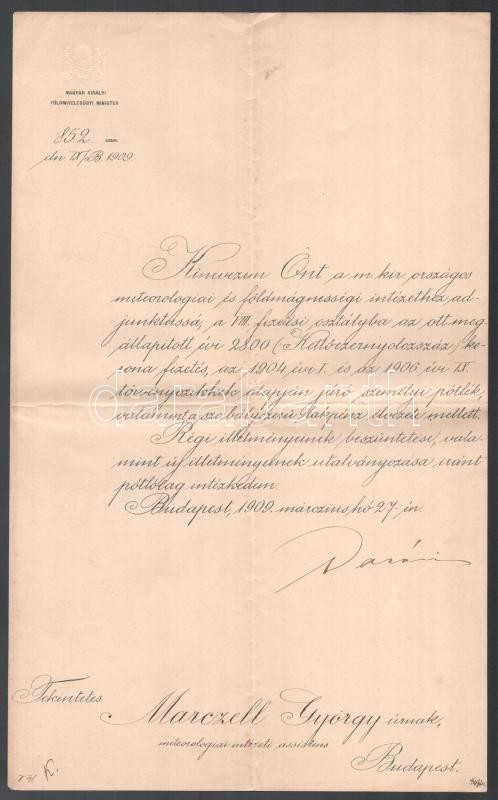 MAGYAR KIRÁLYI
FÖLDMIVELÉSÜGYI MINISTER
852 szám.
eln. IX/B. 1909.
Kinevezem Önt a m. kir. országos
meteorologiai és földmágnességi intézethez ad-
junktussá, a VIII. fizetési osztályba az ott meg-
állapított évi 2800 (Kettőezernyolczszáz) ko-
rona fizetés, az 1904 évi I. és az 1906 évi IX.
törvényczikkek alapján járó személyi pótlék,
valamint a szabályszerű lakpénz élvezete mellett.
Régi illetményeinek beszüntetése, vala-
mint új illetményeinek utalványozása iránt
pótlólag intézkedem.
Budapest, 1909. márczius hó 27-én.
Darányi
Tekintetes
Marczell György úrnak,
meteorologiai intézeti assistens
Budapest.
K.